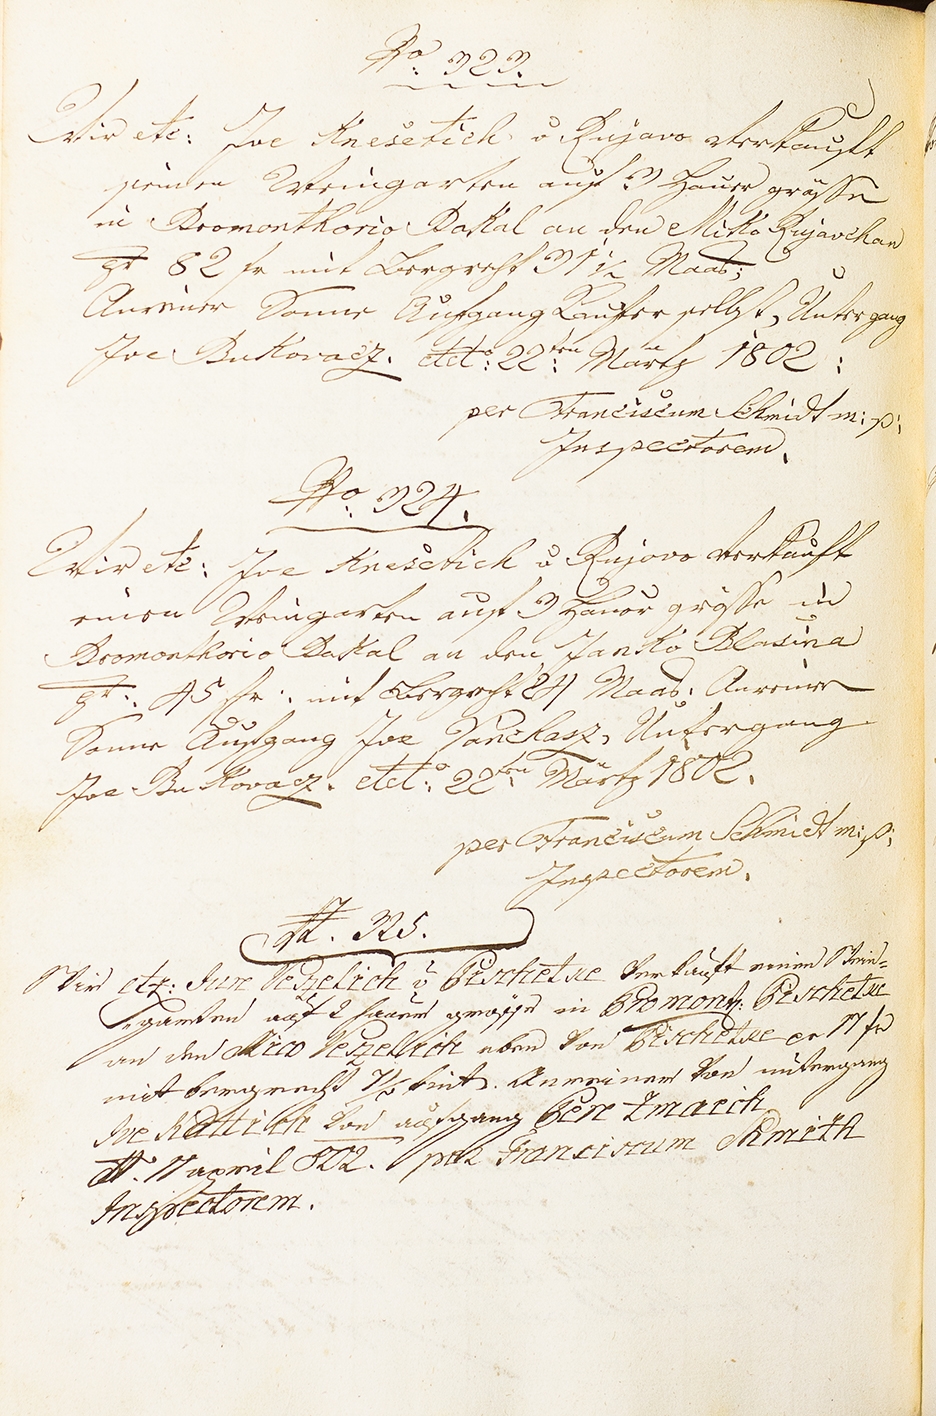 No. 323.
Wir etc: Ive Knesetich v Rujavo verkauft
seinen Weingarten auf 3 Hauer grösse
in Promonthorio Dakal an den Miko Rujavchan
pr 82 fr mit Bergrecht 31 1/2 Maas;
Anreiner Sonne Aufgang Kaufer selbst, Untergang
Ive Bukovacz. dtto: 22ten Martz 1802:
per Franciscum Schmidt m: p:
Inspectorem.
No. 324.
Wir etc: Ive Knesetich v Rujovo verkauft
einen Weingarten auf 3 Hauer grösse in
Promonthorio Dakal an den Janko Blasina
pr: 45 fr: mit Bergrecht 24 Maas: Anreiner
Sonne Aufgang Ive Janchasz, Untergang
Ive Bukovacz. dtto: 22ten Märtz 1802.
per Franciscum Schmidt m: p:
Inspectorem.
N. 325.
Wir etz: Jure Veszelich v Pischetxe verkauft einen Wein-
garten auf 2 hauer grösse in Promont: Pischetxe
an den Mico Veszelich eben von Pischetxe pr 17 fr
mit bergrecht 7/8 Pint. Anreiner von untergang
Ive Kattich von aufgang Pere Zmaich
dt. 17 april 802. per Franciscum Schmith
Inspectorem.